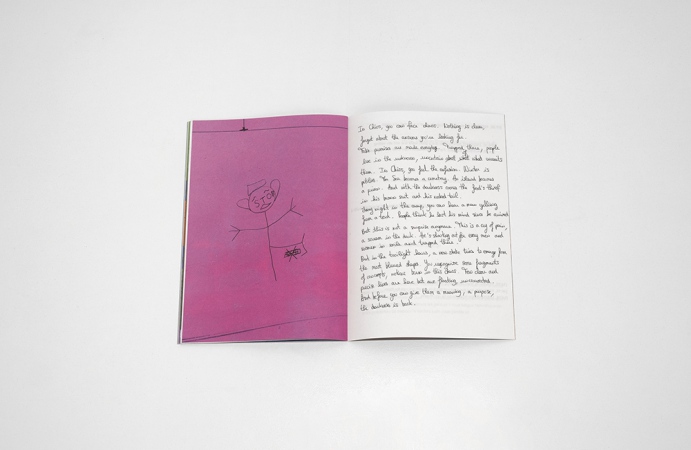 STOP
In Chios, you can face chaos. Nothing is clear,
forget about the answers you're looking for.
Fake promises are made everyday. Trapped there, people
live in the unknown, uncertain about what awaits
them. In Chios, you feel the confusion. Winter is
pitiless. The Sea becomes a cemetery, the island becomes
a prison. And with the darkness comes the
in his
Every night in the camp, you can hear a man yelling
from a tent. People think he lost his mind since he arrived
But this is not a surprise anymore. This is a cry of pain,
a scream in the dark. He's shouting out for every men and
women in exile and trapped there.
But in the twilight hours, a new state tries to emerge from
the most blurred shapes. You recognize some fragments
of concepts, in this chaos. Few clear and
precise lines are here but are floating, unconnected.
And before you can give them a meaning, a purpose,
the darkness is back.